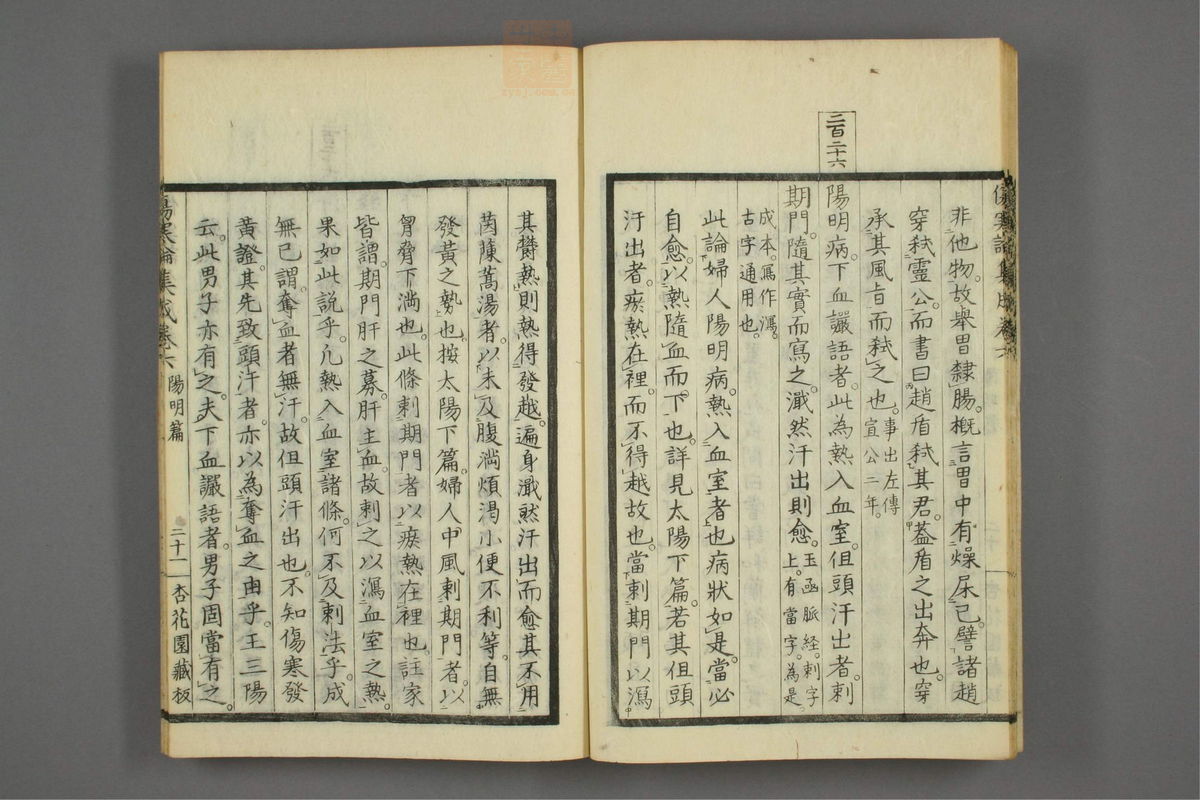 二百二十六
非他物。故舉胃隸腸。概言胃中有燥屎已。譬諸趙
穿弒靈公。而書曰趙盾弒其君。蓋盾之出奔也。穿
承其風旨而弒之也。事出左傳
宣公二年。
陽明病。下血讝語者。此為熱入血室。但頭汗出者。刺
期門。隨其實而寫之。濈然汗出則愈。玉函脈經。刺字
上。有當字。為是。
成本。寫作瀉。
古字通用也。
此論婦人陽明病。熱入血室者也。病狀如是。當必
自愈。以熱隨血而下也。詳見太陽下篇。若其但頭
汗出者。瘀熱在裡。而不得越故也。當刺期門以瀉
其鬱熱。則熱得發越。遍身濈然汗出而愈。其不用
茵蔯蒿湯者。以未及腹滿煩渴小便不利等。自無
發黃之勢也。按太陽下篇。婦人中風刺期門者。以
胷脅下滿也。此條刺期門者。以瘀熱在裡也。註家
皆謂。期門肝之募。肝主血。故刺之以瀉血室之熱。
果如此說乎。凡熱入血室諸條。何不及刺法乎。成
無已謂。奪血者無汗。故但頭汗出也。不知傷寒發
黃證。其先致頭汗者。亦以為奪血之由乎。王三陽
云。此男子亦有之。夫下血讝語者。男子固當有之。
傷寒論集成卷六
陽明篇
三十一
杏花園藏板